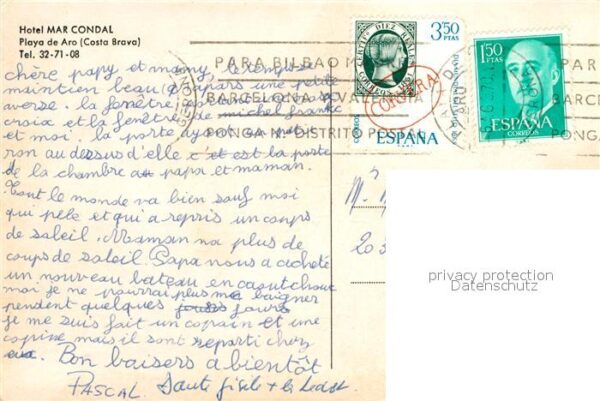 Hotel MAR CONDAL
Playa de Aro (Costa Brava)
Tel. 32-71-08
chère papy et mamy, le temps se
maintien beau à part une petite
averse. la fenêtre
croix et la fenêtre de michel frank
et moi. la porte ayant un
ron au dessus d'elle c'et est la porte
de la chambre au papa et maman.
Tout le monde va bien sauf moi
qui pèle et qui a repris un coups
de soleil. Maman n'a plus de
coups de soleil. Papa nous a acheté
un nouveau bateau en caoutchouc
moi je ne pourrai plus me baigner
pendent quelques jours
je me suis fait un copain et une
copine mais il sont reparti chez
eux. Bon baisers a bientôt
PASCAL.
PARA BILBAO M
BARCELONA VALENCIA
PONGA Nº DISTRITO POSTAL
CENTº DIEZ REALES
CORREOS 1850
3,50
PTAS
CORREOS
ESPAÑA
1,50 PTAS
ESPAÑA
CORREOS
PAR
BARCE
PONGA
M.
20
privacy protection
Datenschutz